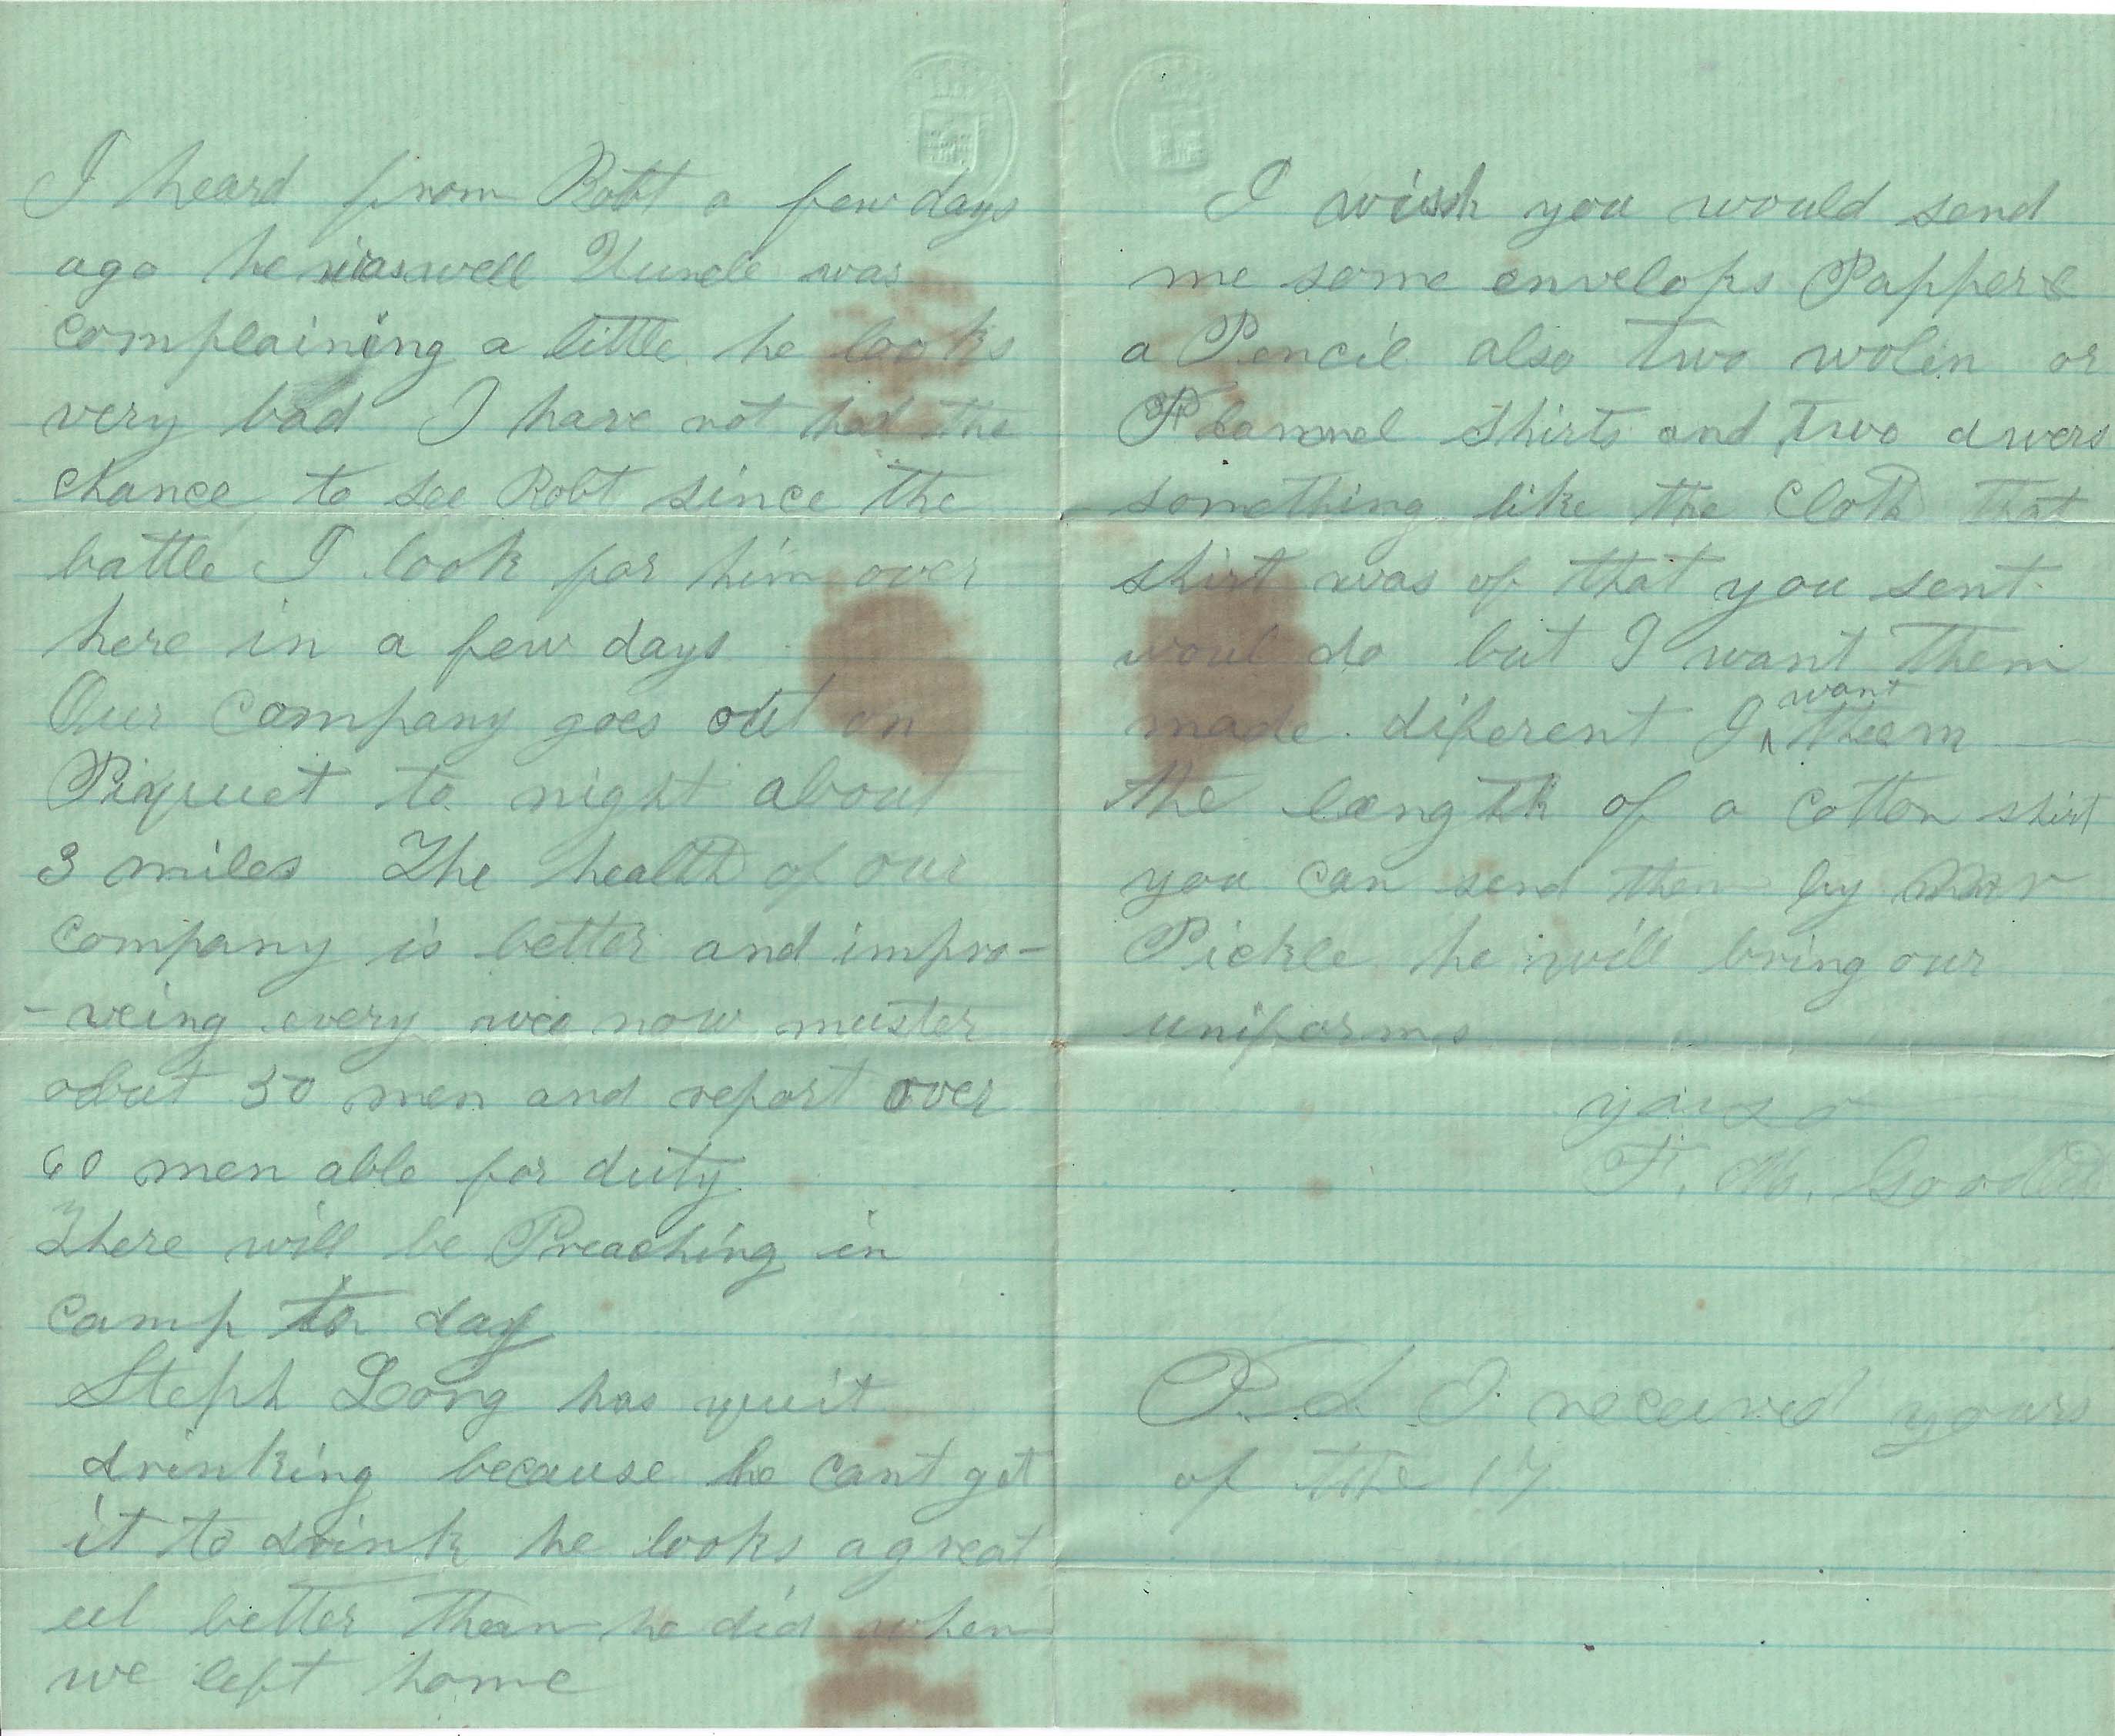 I heard from Robt a few days
ago he was well Uuncle was
complaining a little he looks
very bad I have not had the
chance to see Robt since the
battle I look for him over
here in a few days
Our Company goes out on
Piquet to night about
3 miles The health of our
Company is better and impro-
-veing every wee now muster
about 50 men and report over
60 men able for duty
There will be Preaching in
camp to day
Steph Long has quit
drinking because he cant get
it to drink he looks a great
eel better than he did when
we left home
I wish you would send
me some envelops Papper &
a Pencil also two wolin or
Flannel Shirts and two drwers
something like the Cloth that
shirt was of that you sent
woul do but I want them
made diferent I ^ want them
the length of a cotton shirt
you can send them by Mr
Pickle he will bring our
uniforms
yours
F. M.
P. S I received yours
of the 17